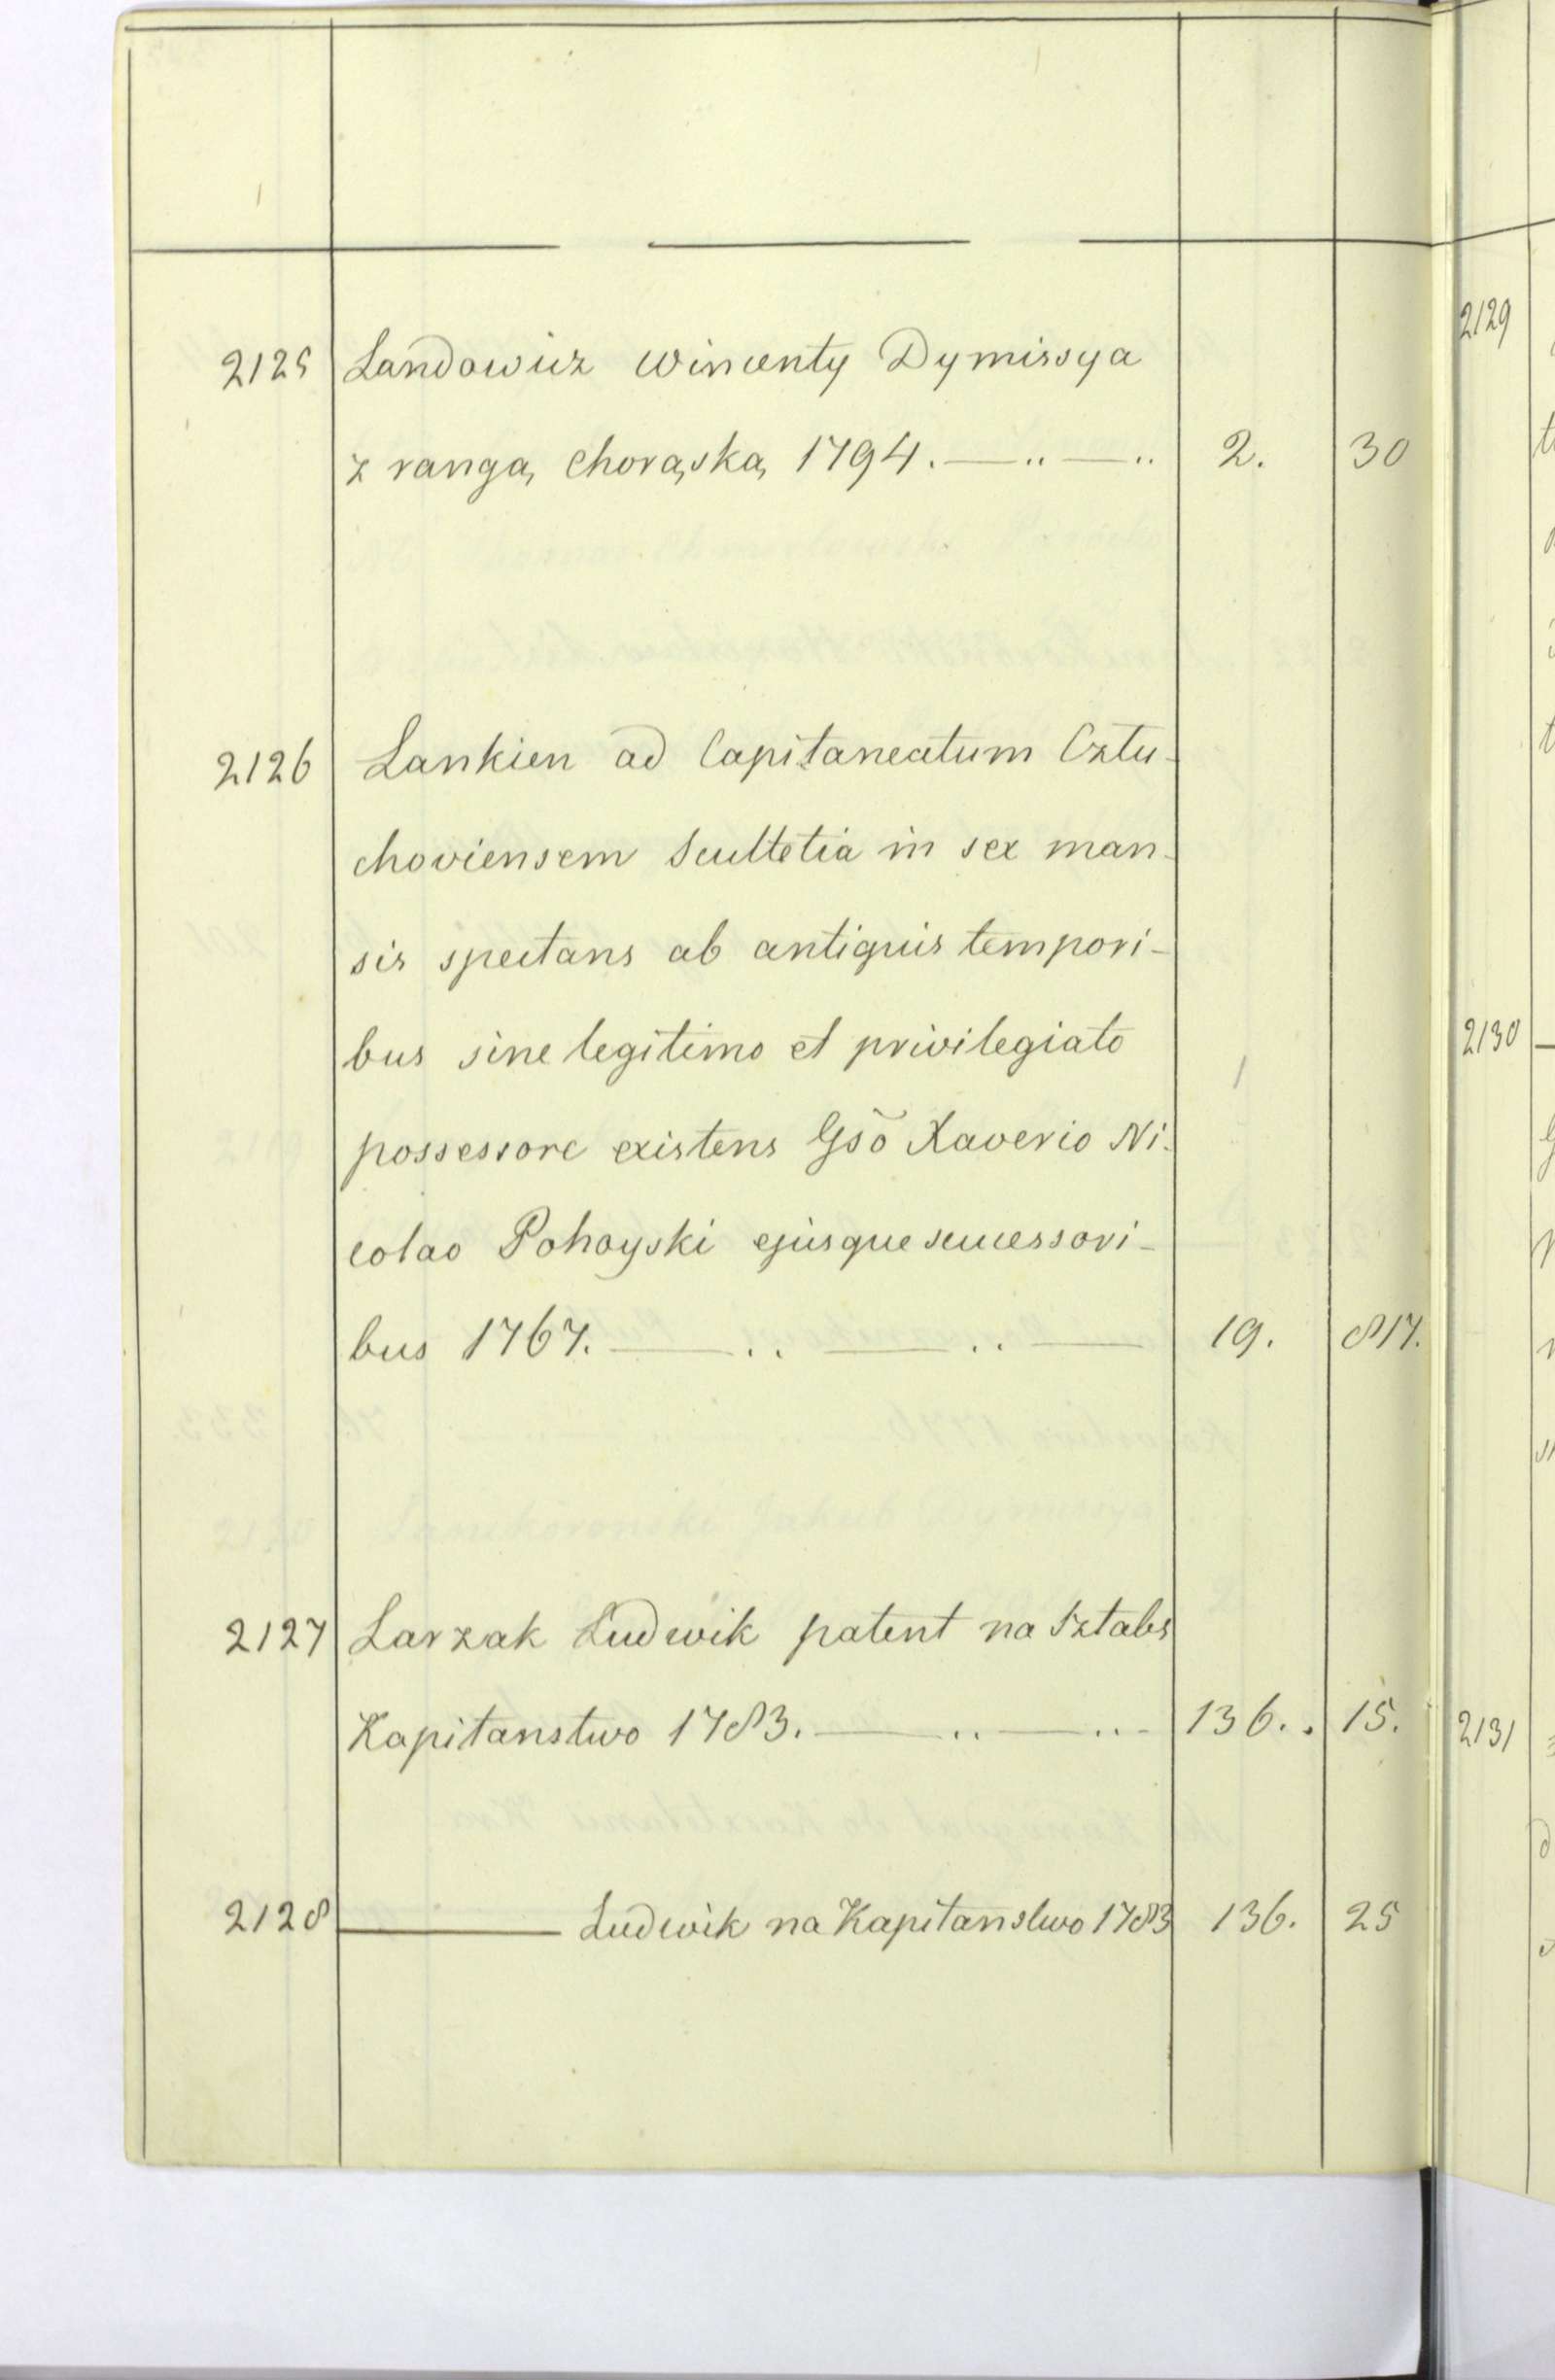 2125 Landowicz Wincenty Dymissya
z rangą chorąską 1794. — .. — .. 2. 30
2126 Lankien ad Capitaneatum Cztu-
choviensem Scultetia in sex man-
sis spectans ab antiquis tempori-
bus sine legitimo et privilegiato
possessore existens Gsõ Xaverio Ni-
colao Pohoyski ejusque successori-
bus 1767. — .. — .. — 19. 817.
2127 Larzak Ludwik patent na Sztabs
Kapitanstwo 1783. — .. — .. - 136. . 15.
2128 — Ludwik na Kapitanstwo 1783 136. 25
2129
2130
2131